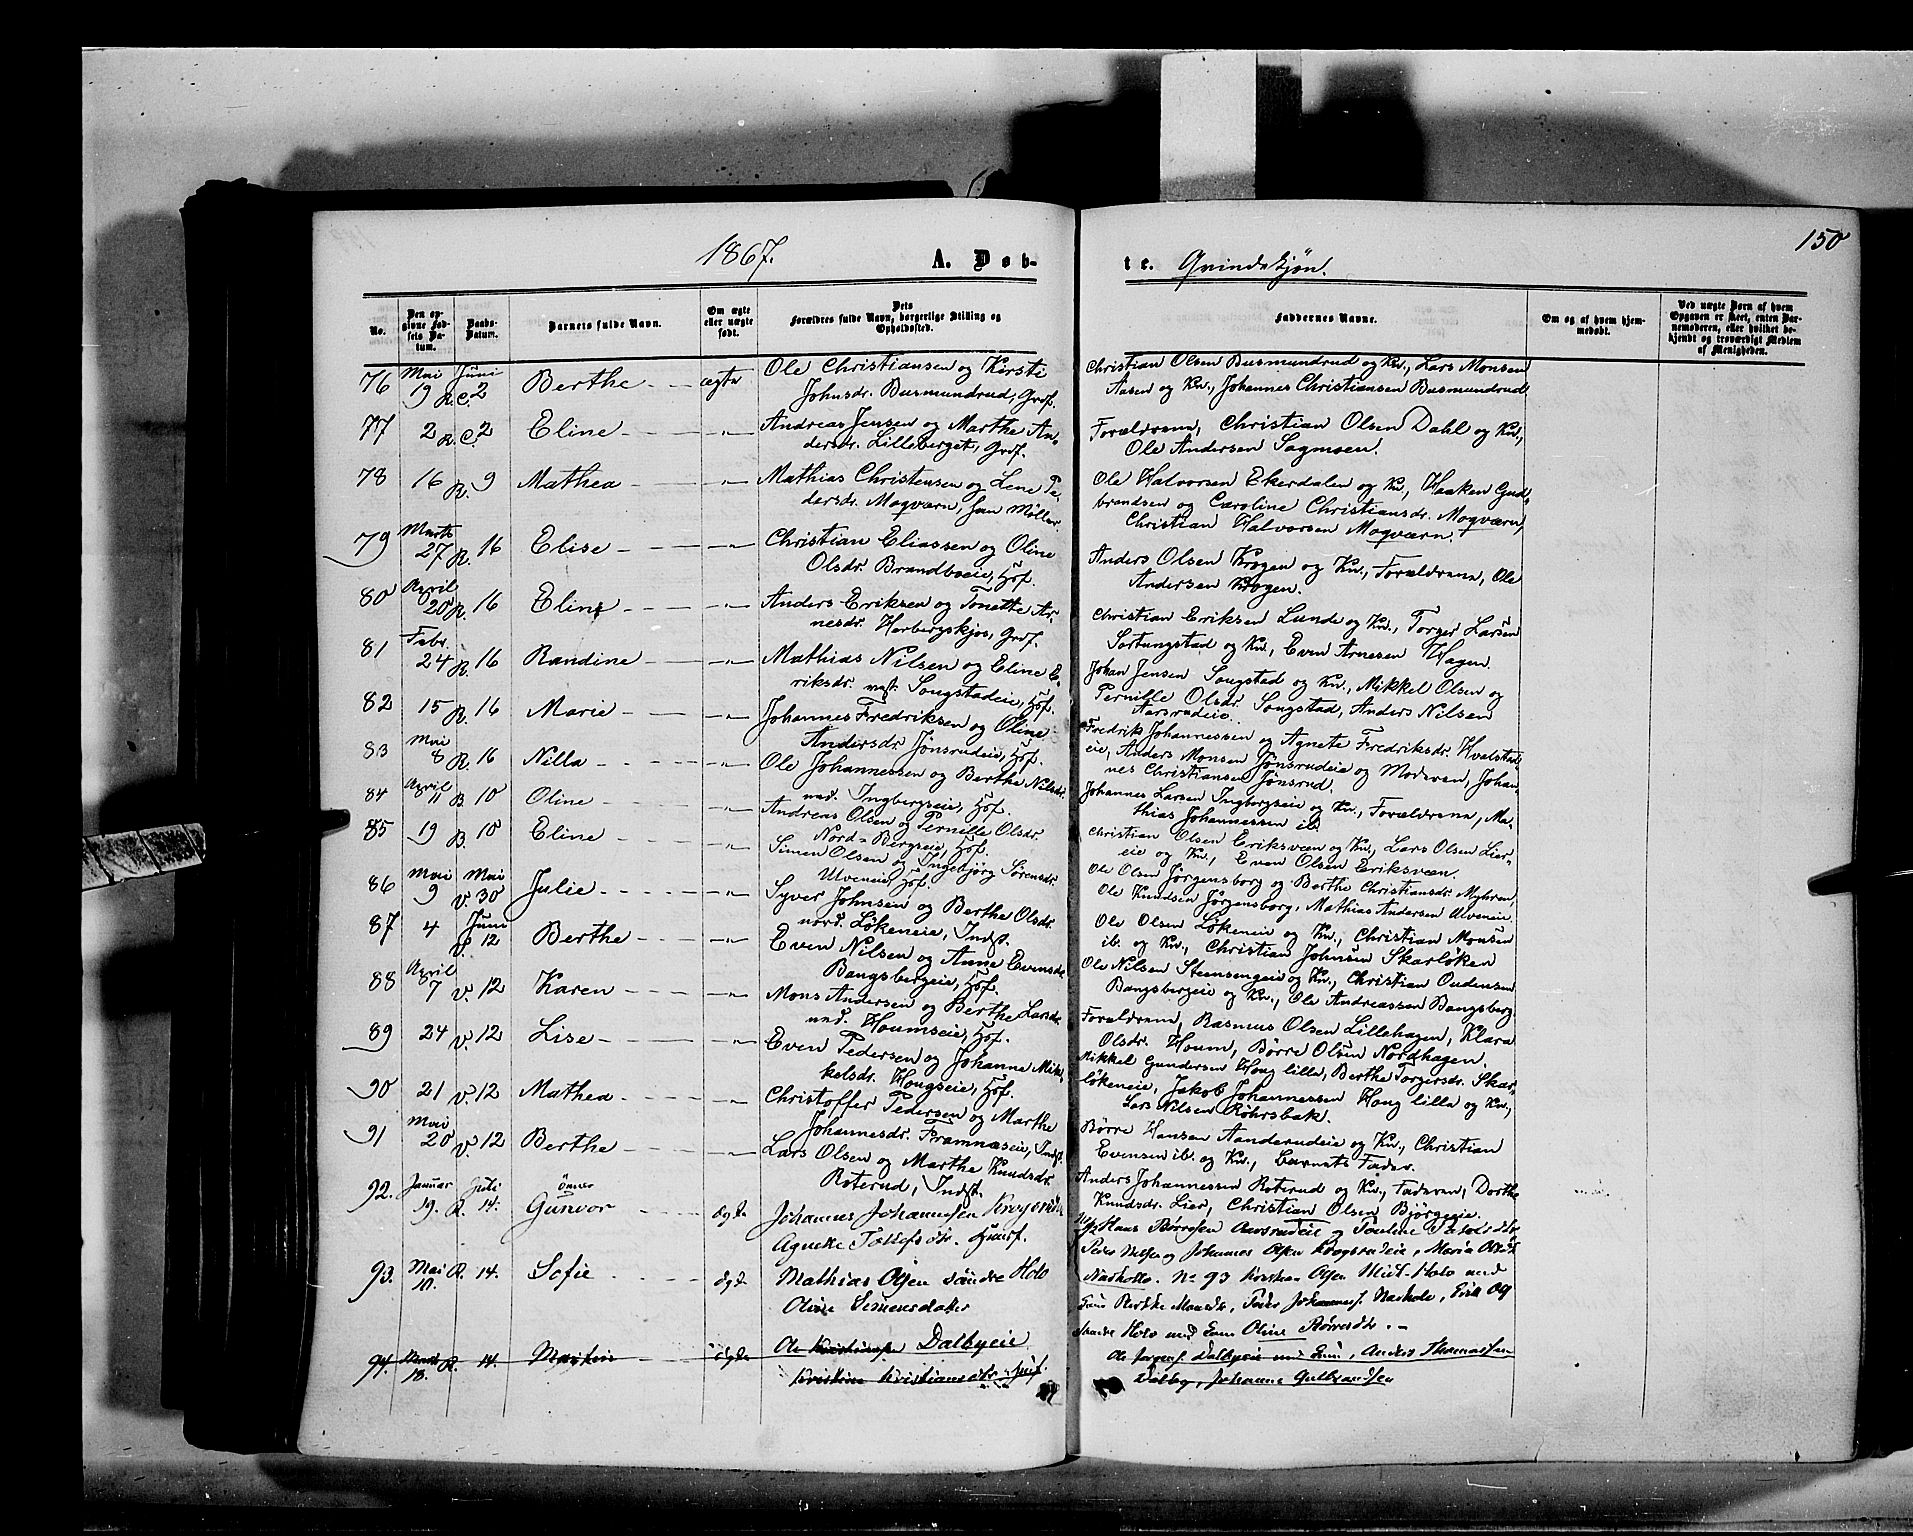 1867.
A. Døb-
te. Qvindekjøn.
150
No.
Den opgivne Fødsels Datum.
Daabs-Datum.
Barnets fulde Navn.
Om ægte eller uægte født.
Dets Forældres fulde Navn, borgerlige Stilling og Opholdssted.
Faddernes Navne.
Om og af hvem hjemmedøbt.
Ved uægte Børn af hvem Opgaven er skeet, enten Barnemoderen, eller hvilket bekjendt og troværdigt Medlem af Menigheden.
76 Mai 19 R.C. Juni 2 Berthe ægte Ole Christiansen og Kirsti
Johnsdr. Busmundrud, Grdf.
Christian Olsen Busmundrud og Kn., Lars Monsen
Aasen og Kn., Johannes Christiansen Busmundrud
77 2 R.C. 2 Eline -"- Andreas Jensen og Marthe An-
dersdr. Lilleberget, Grdf.
Forældrene, Christian Olsen Dahl og Kn.,
Ole Andersen Sagmoen.
78 16 R. 9 Mathea -"- Mathias Christensen og Lene Pe-
dersdr. Moqværn, Møller
Ole Halvorsen Ekerdalen og Kn., Haaken Gud-
brandsen og Caroline Christiansdr. Moqværn,
Christian Halvorsen Moqværn.
79 Marts 27 R. 16 Elise -"- Christian Eliassen og Oline
Olsdr. Brandboeie, Hsf.
Anders Olsen Krogen og Kn., Forældrene, Ole
Andersen Krogen.
80 April 20 R. 16 Eline -"- Anders Eriksen og Tonette Ar-
nesdr. Horbergskjos, Grdf.
Christian Eriksen Lunde og Kn., Torger Larsen
Sortungstad og Kn., Even Arnesen Hagen.
81 Febr. 24 R. 16 Randine -"- Mathias Nilsen og Eline E-
riksdr. Songstadeie, Hsf.
Johan Jensen Songstad og Kn., Mikkel Olsen og
Pernille Olsdr. Songstad, Anders Nilsen
Aasrudeie.
82 15 R. 16 Marie -"- Johannes Fredriksen og Oline
Andersdr. Jønsrudeie, Hsf.
Fredrik Johannessen og Agnete Fredriksdr. Hvalstad-
eie, Anders Monsen Jønsrudeie og Moderen, Johan-
nes Christiansen Jønsrud.
83 Mai 8 R. 16 Nilla -"- Ole Johannessen og Berthe Nilsdr.
ned. Ingbergseie, Hsf.
Johannes Larsen Ingborgseie og Kn., Forældrene, Ma-
thias Johannessen ib.
84 April 11 B. 10 Oline -"- Andreas Olsen og Pernille Olsdr.
Nord-Bergseie, Hsf.
Christian Olsen Eriksveen og Kn., Lars Olsen Lier-
eie og Kn., Even Olsen Eriksveen.
85 19 B. 10 Eline -"- Simen Olsen og Ingebjørg Sørensdr.
Ulveneie, Hsf.
Ole Olsen Jørgensborg og Berthe Christiansdr. Myhren,
Ole Knudsen Jørgensborg, Mathias Andersen Ulveneie.
86 Mai 9 V. Mai 30 Julie -"- Syver Johnsen og Berthe Olsdr.
nord. Løkeneie, Indst.
Ole Olsen Løkeneie og Kn., Christian Monsen
ib. og Kn., Christian Johnsen Skarløken
87. 4 V. Juni 12 Berthe -"- Even Nilsen og Anne Evensdr.
Bangsbergeie, Hsf.
Ole Nilsen Steensengeie og Kn., Christian Oudensen
Bangsbergeie og Kn., Ole Andreassen Bangsberg
88 April 7 V. 12 Karen -"- Mons Andersen og Berthe Larsdr.
ned. Houmseie, Hsf.
Forældrene, Rasmus Olsen Lillehagen, Klara
Olsdr. Houm, Børre Olsen Nordhagen.
89 24 V. 12 Lise -"- Even Pedersen og Johanne Mik-
kelsdr. Hougseie, Hsf.
Mikkel Gundersen Houg lille, Berthe Torgersdr. Skar-
løkeneie, Jakob Johannessen Houg lilla og Kn.,
Lars Nilsen Röhrsbak.
90 21 V. 12 Mathea -"- Christoffer Pedersen og Marthe
Johannesdr. Framnæseie, Indst.
Børre Hansen Aanderudeie og Kn., Christian
Evensen ib. og Kn., Barnets Fader.
91 Mai 20 V. 12 Berthe -"- Lars Olsen og Marthe Knudsdr.
Roterud, Indst.
Anders Johannessen Roterud og Kn., Faderen, Dorthe
Knudsdr. Lier, Christian Olsen Bjørgeeie.
92. Januar 19. R. Juli 14. Gunvor ægte Johannes Johannessen
Agnethe
Hans Børresen Aasrudeie og Pauline
Peder Nilsen og Johannes Olsen Maria
93. Mai 10. R. 14. Sofie ægte Mathias Olsen søndre Holo
Oline Simensdatter
No 93 Olsen Holo med
Oline Børresdtr.
94. Marts 18. R. 14. ægte Ole Dalbyeie
Kristine Kristiansdtr.
Ole Dalbyeie med Anders Thomassen
Dalby, Johanne Gulbrandsen